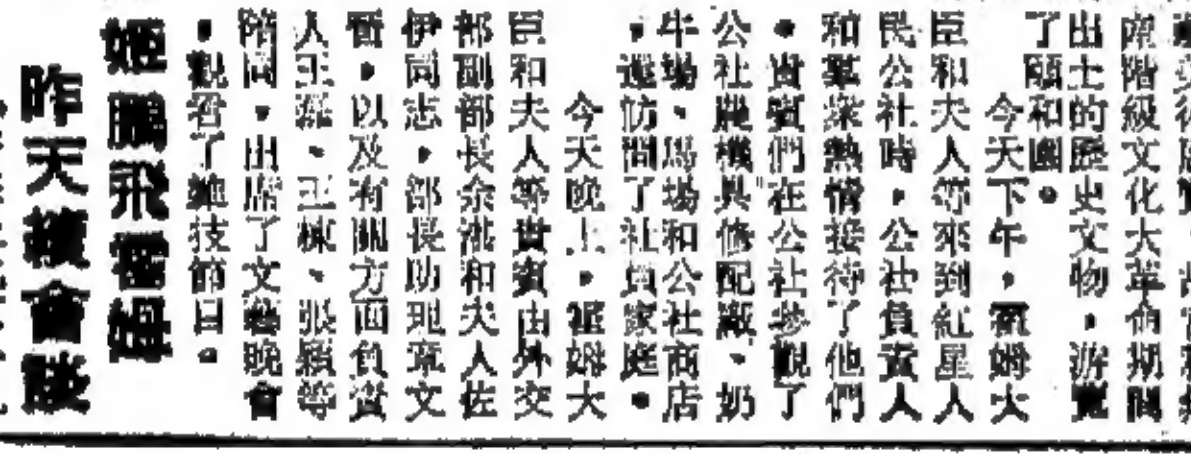 產階級文化大革命期間
出土的歷史文物，游覽
了頤和園。
今天下午，霍姆大
臣和夫人等來到紅星人
民公社時，公社負責人
和羣衆熱情接待了他們
。貴賓們在公社參觀了
公社農機具修配廠、奶
牛場、馬場和公社商店
，還訪問了社員家庭。
今天晚上，霍姆大
臣和夫人等貴賓由外交
部副部長余湛和夫人佐
伊同志，部長助理章文
晉，以及有關方面負責
人王殊、王棟、張穎等
陪同，出席了文藝晚會
，觀看了雜技節目。
姬鵬飛霍姆
昨天續會談